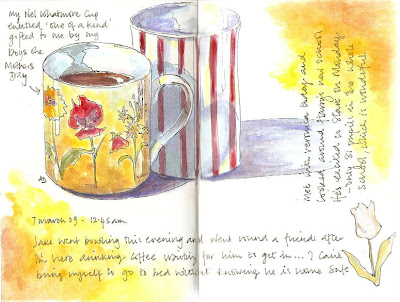 My Nel Whatmore Cup
entitled 'one of a kind'
gifted to me by my
boys one
Mothers
Day
Met with Veronica today and
looked around Harrys new school
He's excited to start on Monday
only 81 pupils in the whole
school, which is wonderful
7 march 09 - 12:45am.
Jake went bowling this evening and went round a friends after
I'm here drinking coffee waiting for him to get in... I can't
bring myself to go to bed without knowing he is home safe